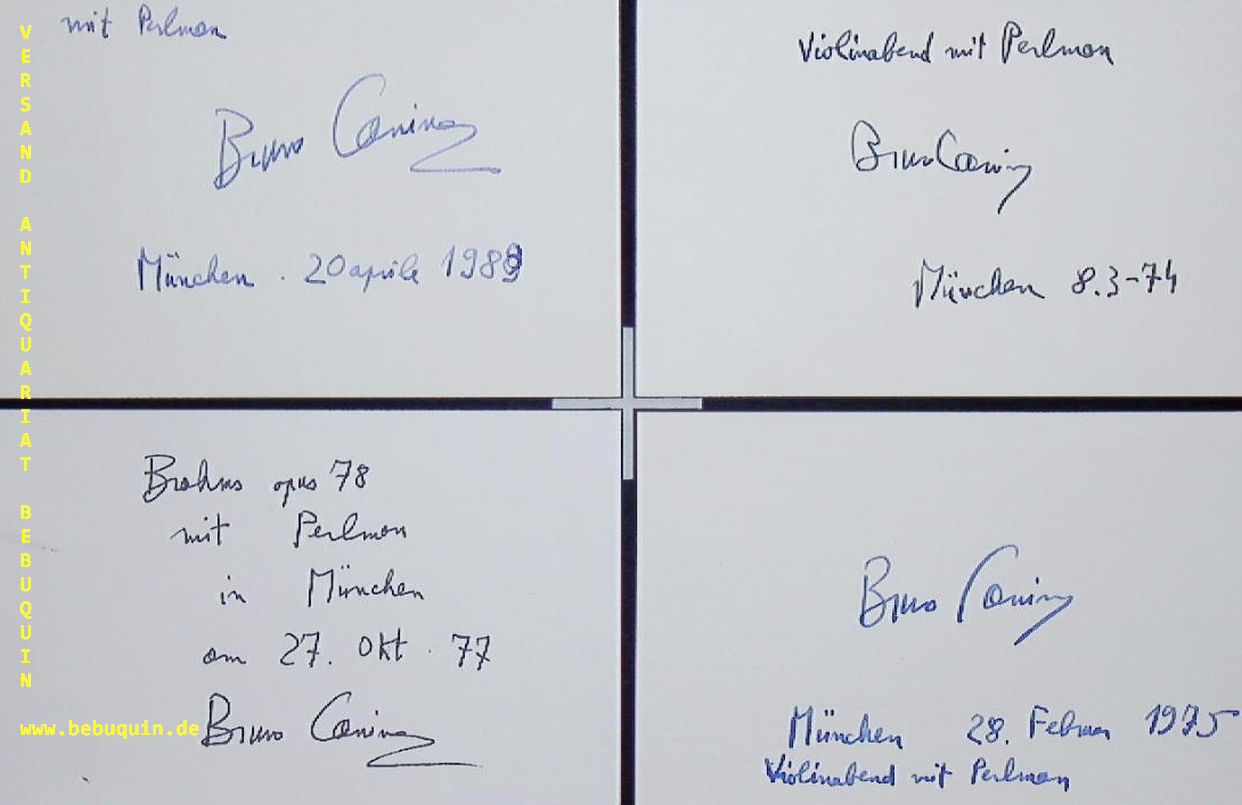 mit Perlman
Bruno Canino
München . 20 aprile 1989
Violinabend mit Perlman
Bruno Canino
München 8.3-74
Brahms opus 78
mit Perlman
in München
am 27. Okt. 77
Bruno Canino
Bruno Canino
München 28. Februar 1975
Violinabend mit Perlman
VERSAND ANTIQUARIAT BEBUQUIN
www.bebuquin.de